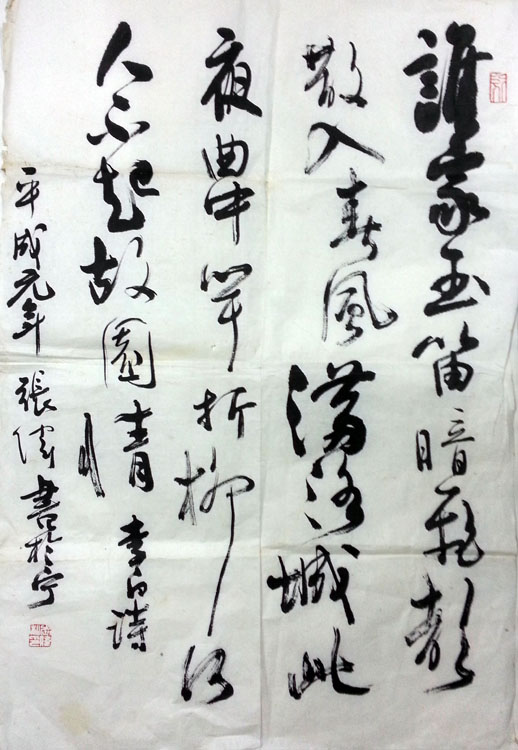 誰家玉笛暗飛聲
散入春風滿洛城此
夜曲中聞折柳何
人不起故園情 李白詩
平成元年 張偉書於寧